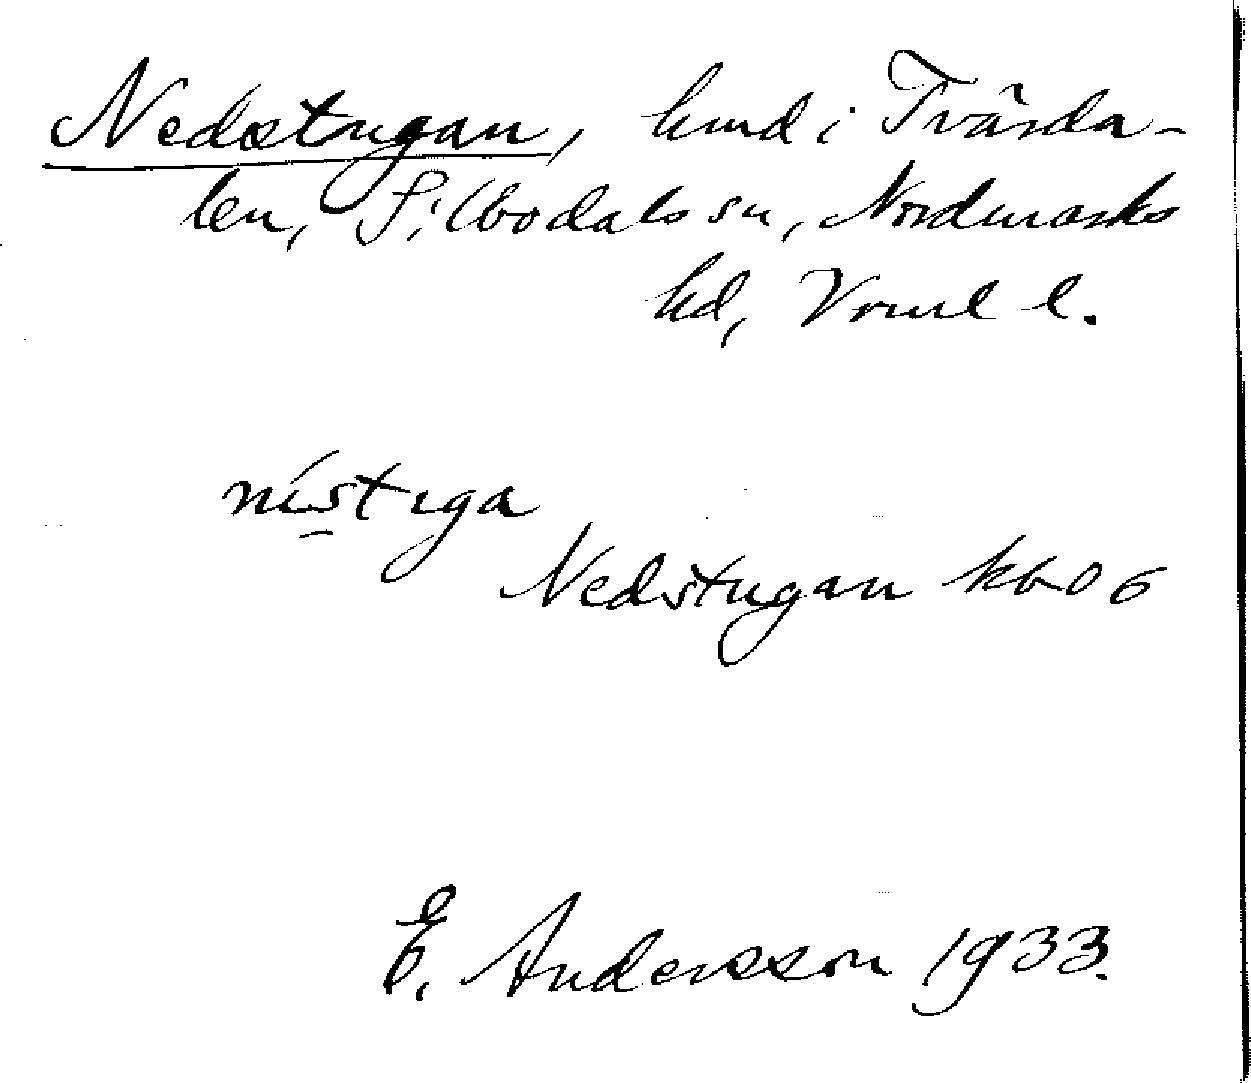 Nedstugan, hmd i Tvärda-
len, Silbodals sn, Nordmarks
hd, Vrml l.
nístıga
Nedstugan kb 06
E. Andersson 1933.